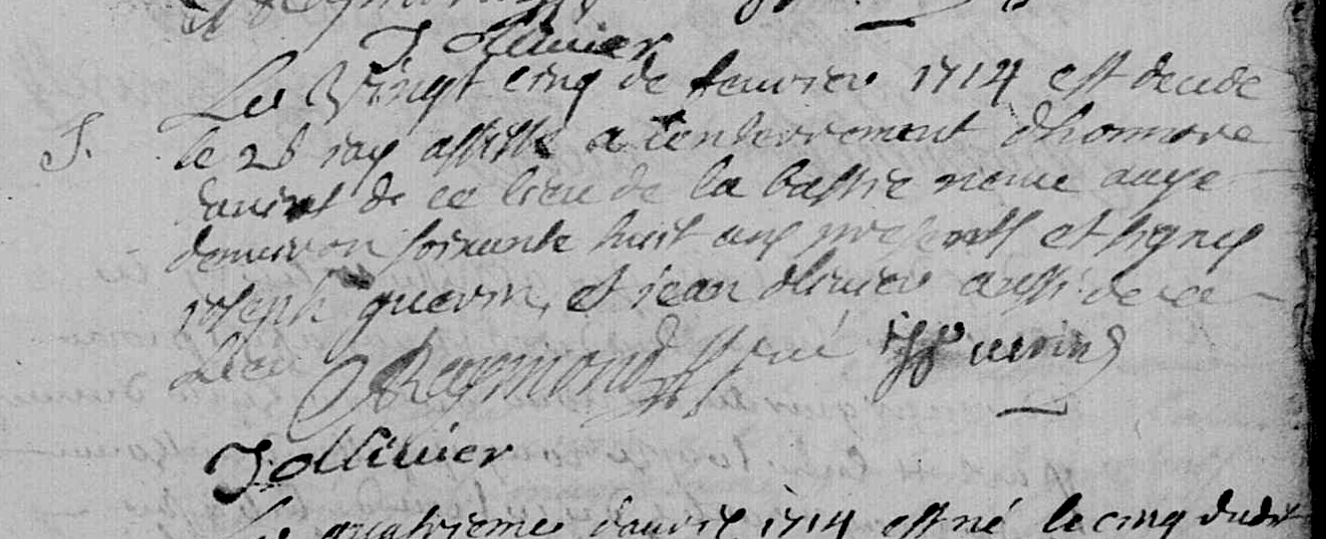 J ollivier
Le Vingt cinq de fevrier 1714 est decede
S. le 26 iay assiste a lenterrement dhonnore
de ce lieu de la bastie neuve aage
denviron soixante huit ans presents et signes
ioseph guerin, et iean olivier aussi de ce
Lieu Reymond curé JGuerin
J ollivier
Le quatrieme davril 1714 est né le cinq dudit